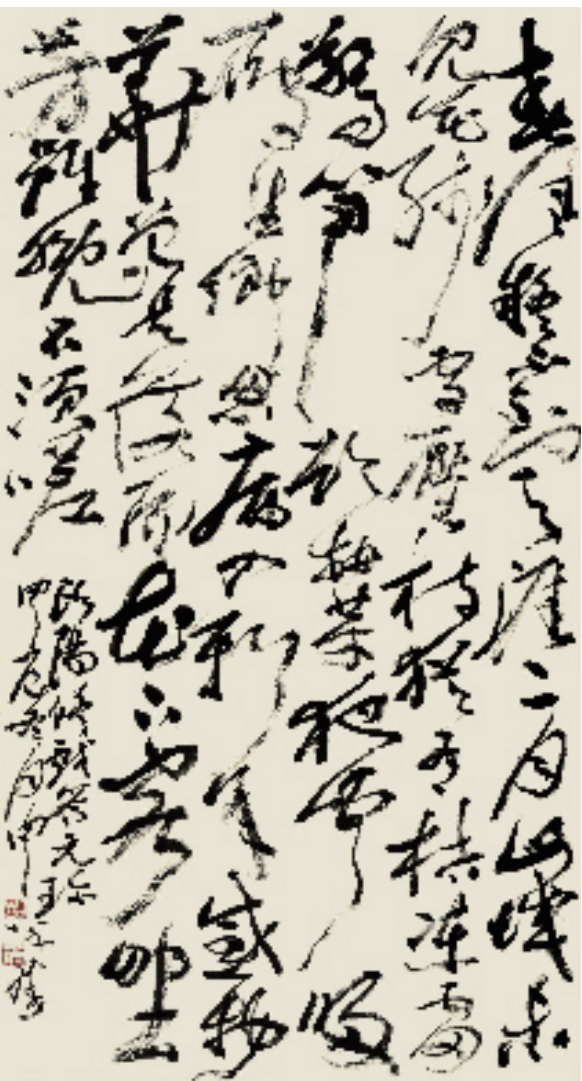 春風疑不到天涯二月山城未
見花殘雪壓枝猶有桔凍雷
驚筍欲抽芽夜聞歸
雁生鄉思病入新年感物
華曾是洛陽花下客野
芳雖晚不須嗟
歐陽修戲答元珍